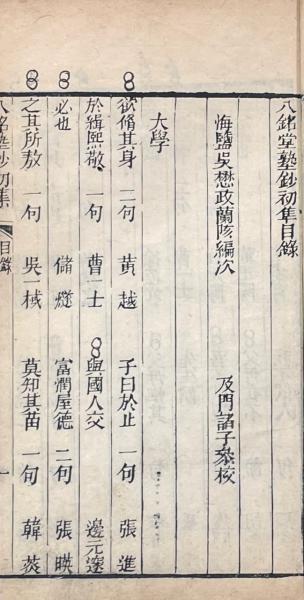 八銘堂塾鈔初集目錄
海鹽吳懋政蘭陔編次 及門諸子叅校
大學
欲脩其身 二句 黃越 子曰於止 一句 張進
於緝熙敬 一句 曹一士 與國人交 邊元
必也 儲 富潤屋德 二句 張暎
之其所敖 一句 吳一棫 莫知其苗 一句 韓菼
八銘塾鈔初集 目錄 一